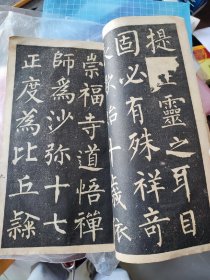 提靈之耳目
固必有殊祥奇
歟始十歲依
崇福寺道悟禪
師為沙弥十七
正度為比丘隸